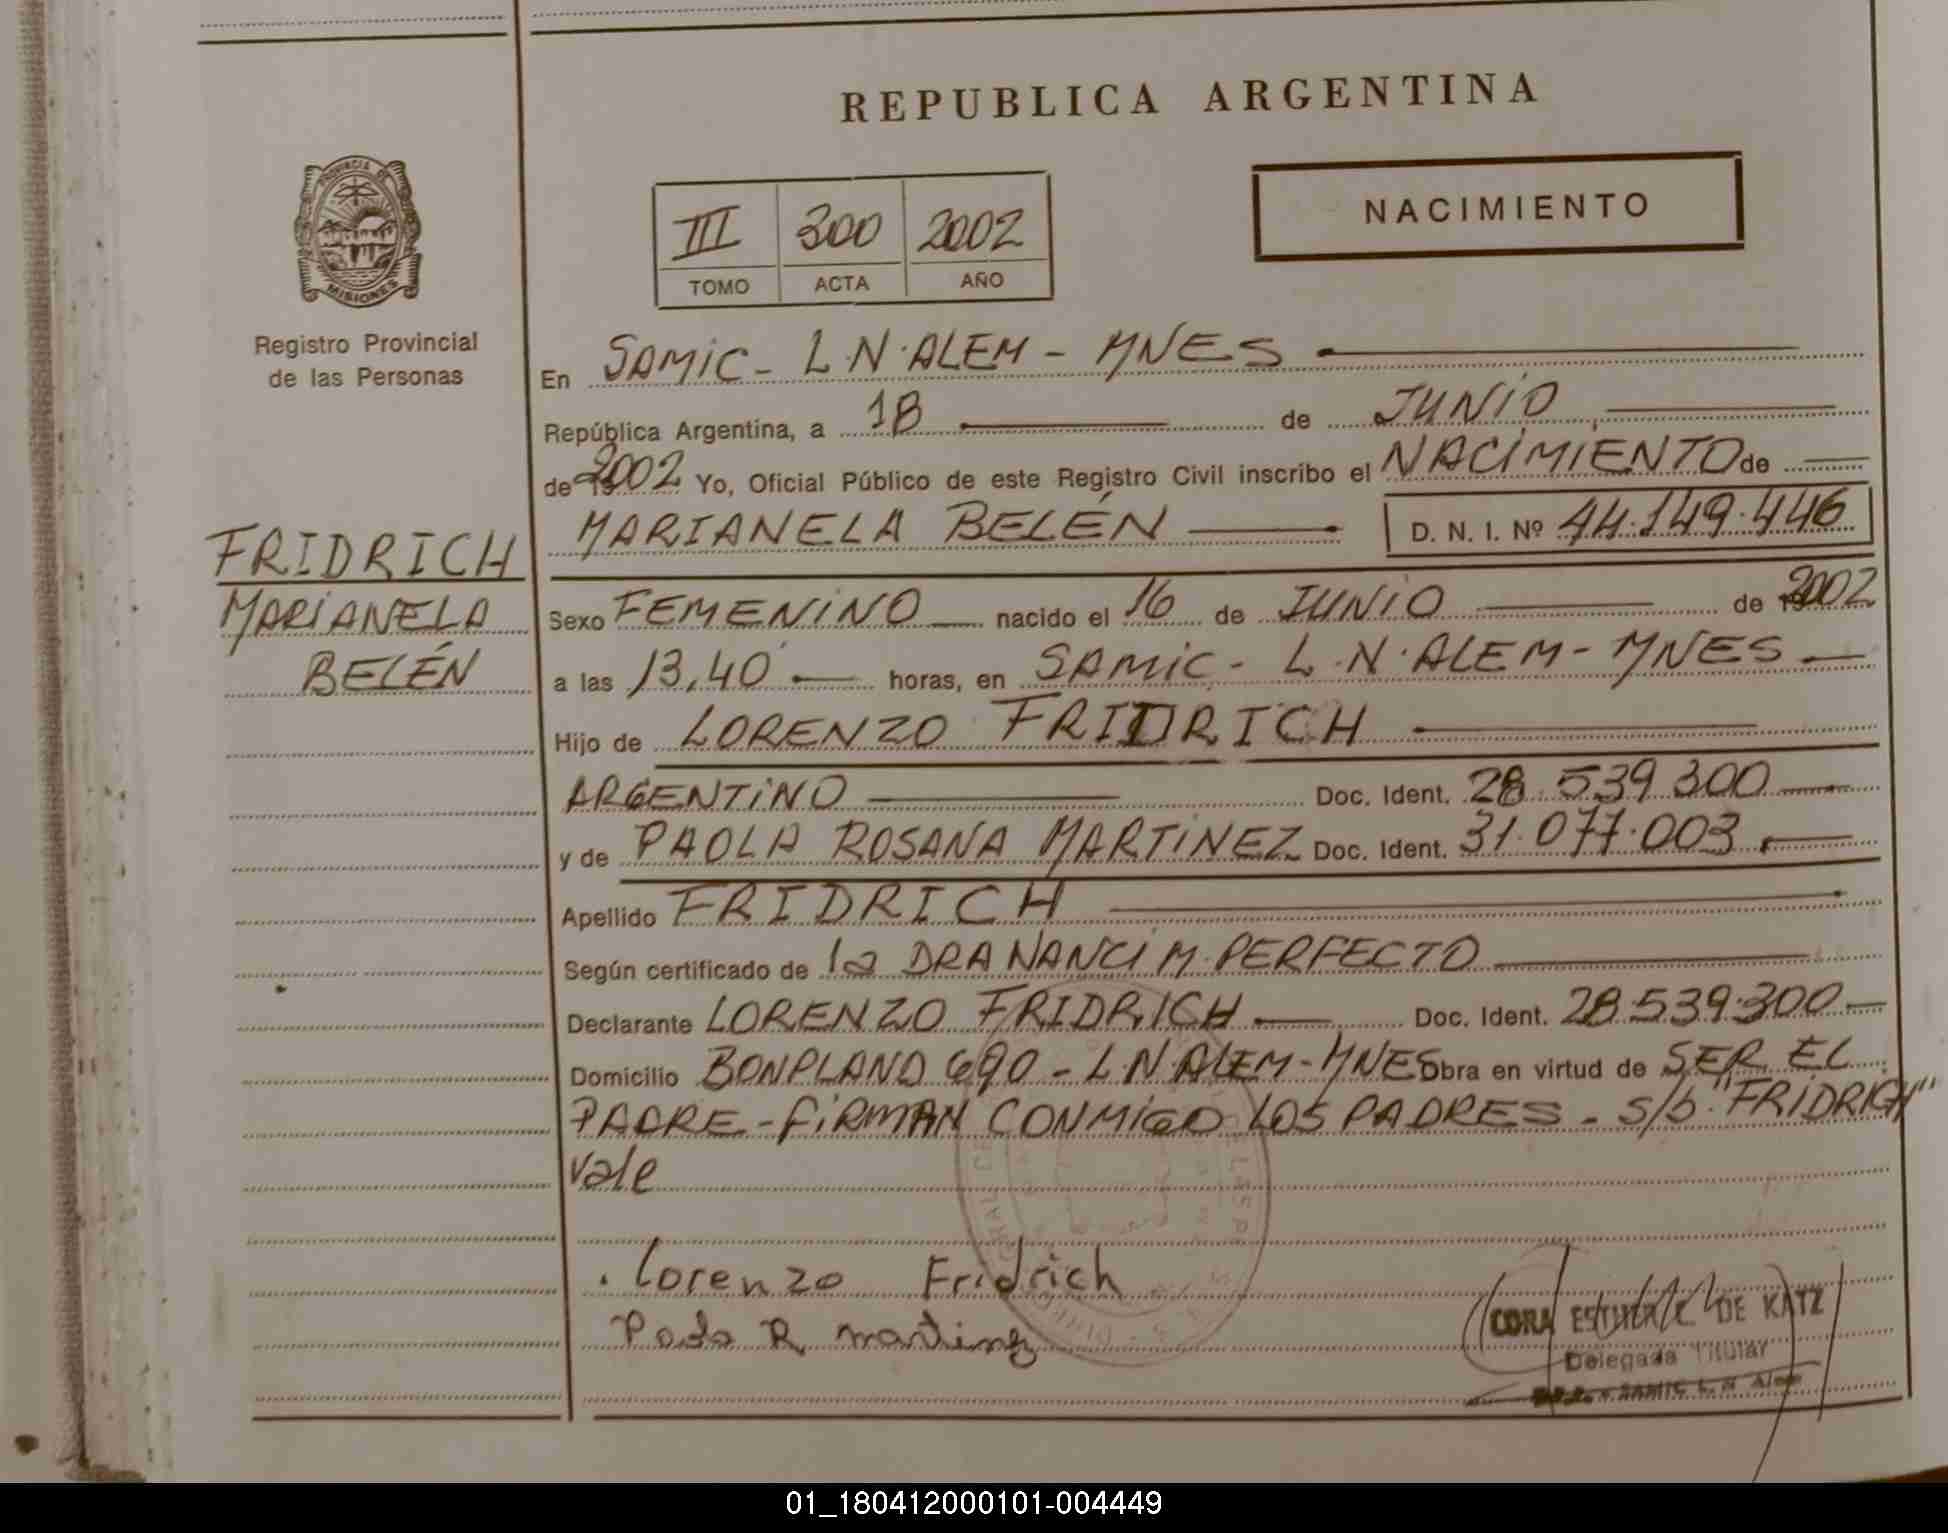 REPUBLICA ARGENTINA
PROVINCIA DE MISIONES
Registro Provincial
de las Personas
NACIMIENTO
III 300 2002
TOMO ACTA AÑO
En SAMIC - L.N.ALEM - MNES
República Argentina, a 18 de JUNIO
de 2002 Yo, Oficial Público de este Registro Civil inscribo el NACIMIENTO de
MARIANELA BELÉN D. N. I. Nº 44.149.446
FRIDRICH
MARIANELA
BELÉN
Sexo FEMENINO nacido el 16 de JUNIO de 2002
a las 13,40 horas, en SAMIC - L.N.ALEM - MNES
Hijo de LORENZO FRIDRICH
ARGENTINO Doc. Ident. 28.539.300
y de PAOLA ROSANA MARTINEZ Doc. Ident. 31.077.003
Apellido FRIDRICH
Según certificado de la DRA NANCI M. PERFECTO
Declarante LORENZO FRIDRICH Doc. Ident. 28.539.300
Domicilio BONPLAND 690 - L.N.ALEM - MNES Obra en virtud de SER EL
PADRE - FIRMAN CONMIGO LOS PADRES - S/b "FRIDRICH"
Vale
Lorenzo Fridrich
Paola R martinez
CORA ESTHER DE KATZ
Delegada Titular
SAMIC L. N Alem
01_180412000101-004449